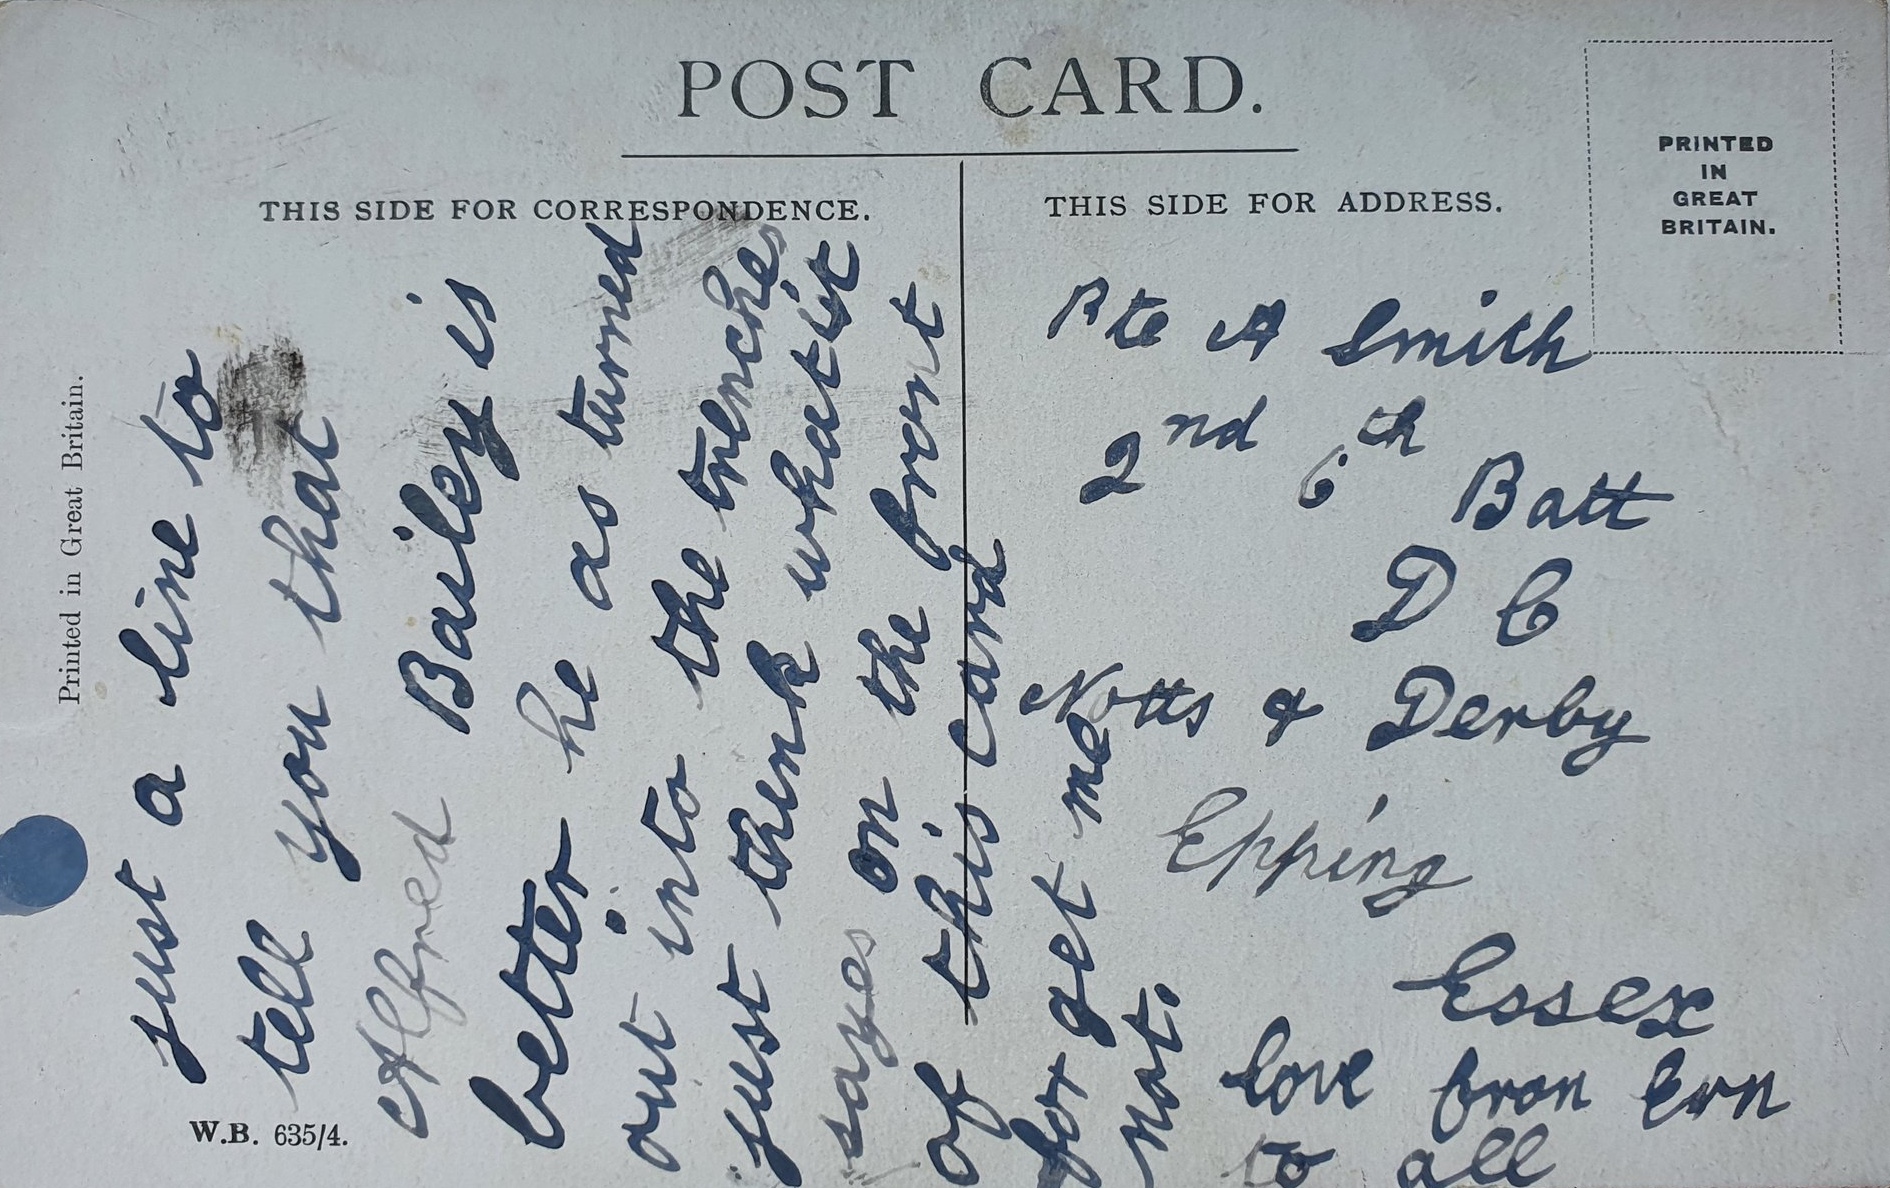 POST CARD.
THIS SIDE FOR CORRESPONDENCE.
THIS SIDE FOR ADDRESS.
PRINTED
IN
GREAT
BRITAIN.
Printed in Great Britain.
W.B. 635/4.
just a line to
tell you that
Alfred Bailey is
better he as turned
out into the trenches
just think what it
sayes on the front
of this card
for get me
not.
Pte A Smith
2nd 6th Batt
D C
Notts & Derby
Epping
Essex
love fron Ern
to all